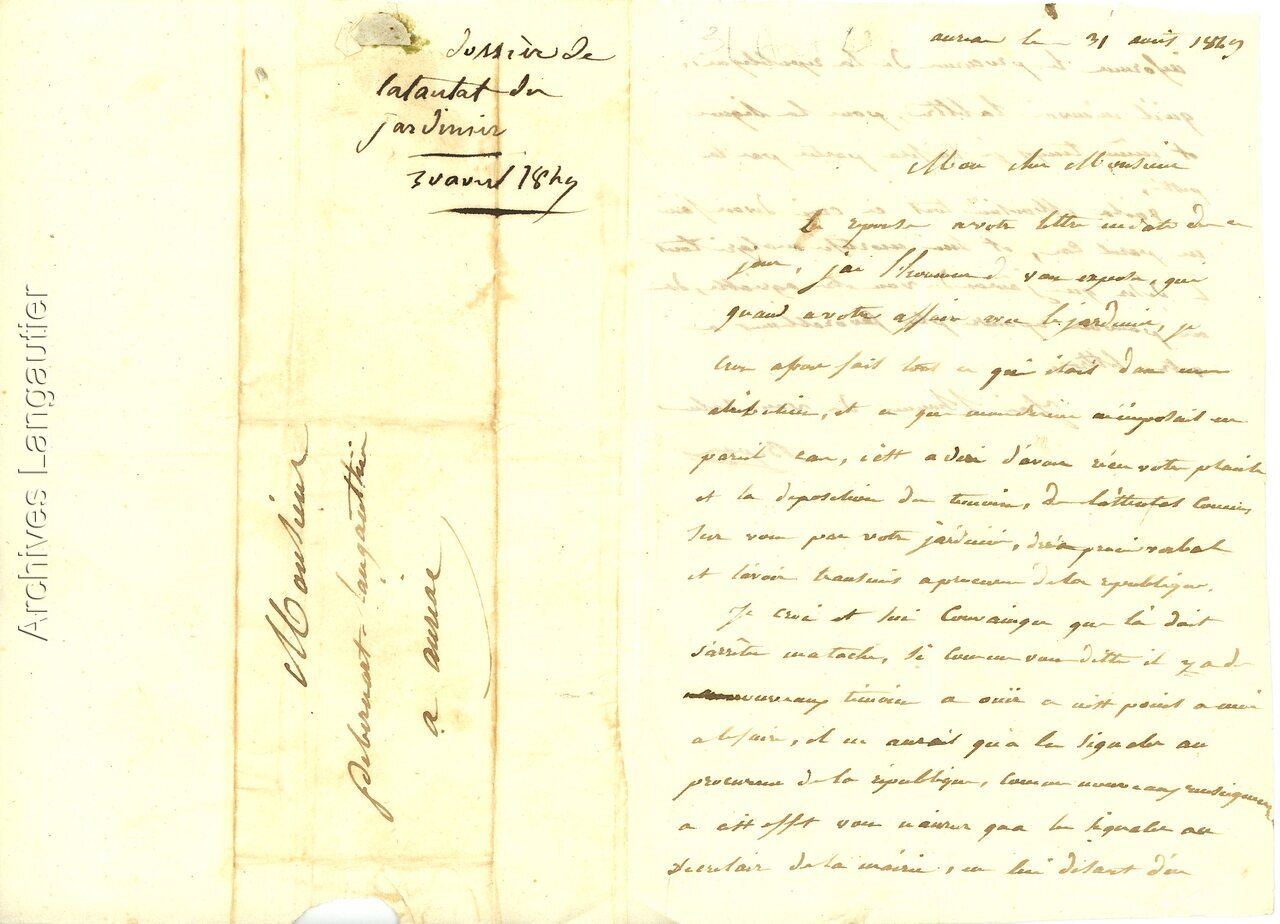 dossièr de
latantat du
jardinier
30 avril 1849
Monsieur
debernat-Langauthier
a auriac
Archives Langautier
auriac le 31 avril 1849
Mon cher Monsieur
En reponse a votre lettre en date de ce
jour, j'ai l'honneur de vous exposer, que
quand a votre affaire avec le jardinier, je
crois avoir fait tout ce qui était dans mes
atribution, et ce que mon devoir m'imposait en
pareil cas, c'est a dire d'avoir réçu votre plainte
et la deposition des temoins, de l'attentat Commis
sur vous par votre jardinier, procé verbal
et l'avoir transmis a procureur de la république.
Je croi et sui Convaincu que là doit
s'arrêter ma tache, Si comme vous dette il y a de
nouveaux temoins a ouir ce n'est point a moi
a le faire, il ne aurait qu'a les signaler au
procureur de la république, comme nouveaux renseignemen
a cet effet vous n'aurez qua les signaler au
Secretair de la mairie, en lui disant d'en